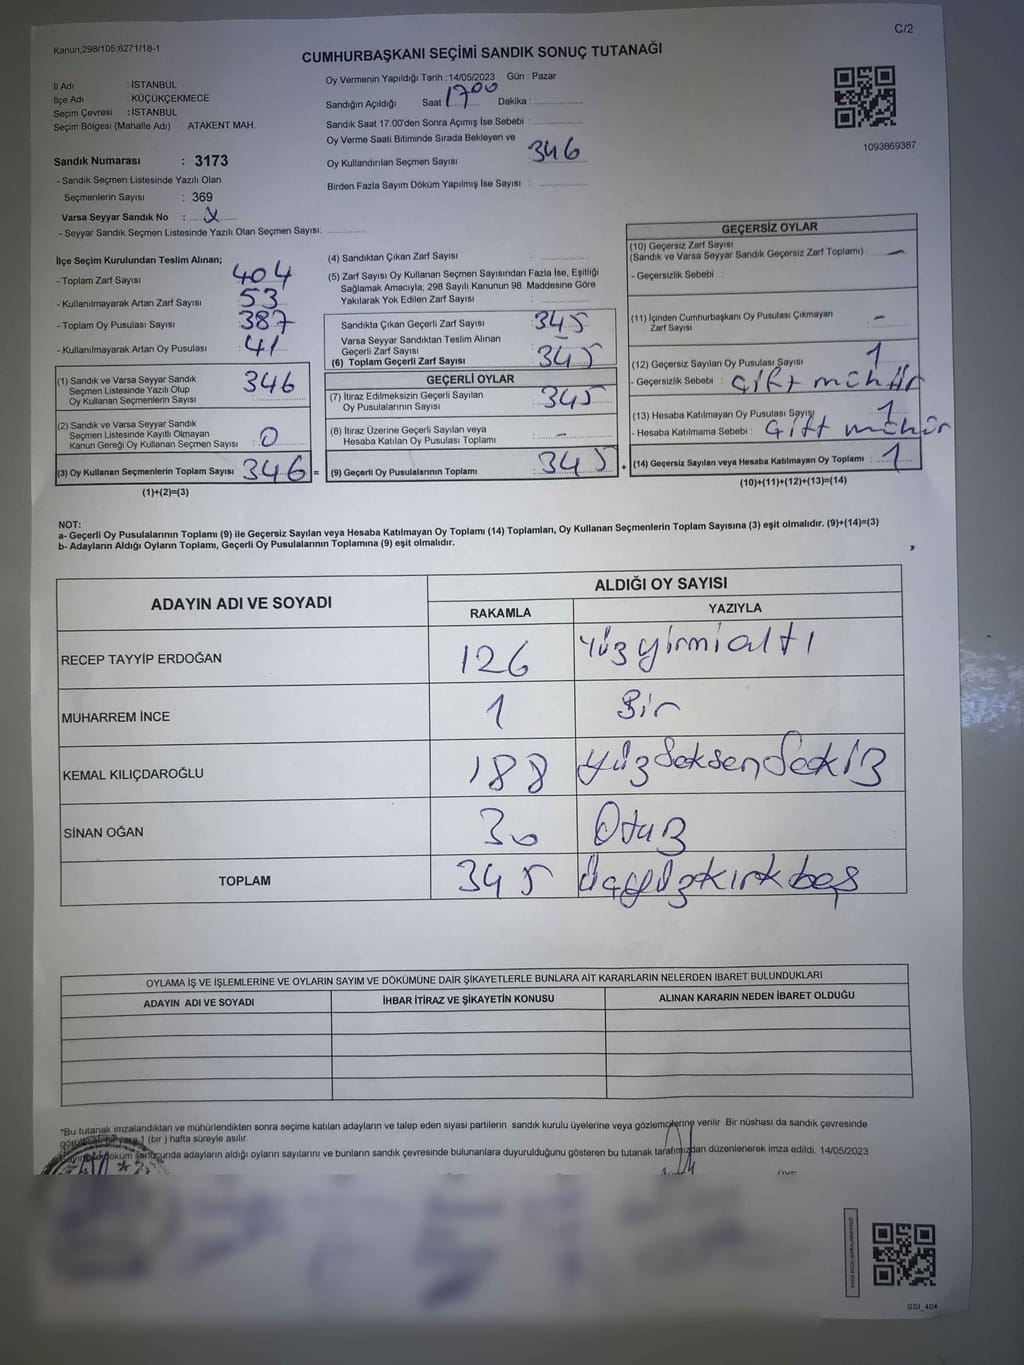 Kanun;298/105;6271/18-1
C/2
CUMHURBAŞKANI SEÇİMİ SANDIK SONUÇ TUTANAĞI
İl Adı : İSTANBUL
İlçe Adı : KÜÇÜKÇEKMECE
Seçim Çevresi : İSTANBUL
Seçim Bölgesi (Mahalle Adı) : ATAKENT MAH.
Sandık Numarası : 3173
- Sandık Seçmen Listesinde Yazılı Olan
Seçmenlerin Sayısı : 369
Varsa Seyyar Sandık No :
- Seyyar Sandık Seçmen Listesinde Yazılı Olan Seçmen Sayısı:
Oy Vermenin Yapıldığı Tarih : 14/05/2023 Gün : Pazar
Sandığın Açıldığı Saat 17 00 Dakika :
Sandık Saat 17:00'den Sonra Açımış İse Sebebi :
Oy Verme Saati Bitiminde Sırada Bekleyen ve
Oy Kullandırılan Seçmen Sayısı 346
Birden Fazla Sayım Döküm Yapılmış İse Sayısı :
1093869387
İlçe Seçim Kurulundan Teslim Alınan;
- Toplam Zarf Sayısı 404
- Kullanılmayarak Artan Zarf Sayısı 53
- Toplam Oy Pusulası Sayısı 387
- Kullanılmayarak Artan Oy Pusulası 41
(1) Sandık ve Varsa Seyyar Sandık
Seçmen Listesinde Yazılı Olup
Oy Kullanan Seçmenlerin Sayısı 346
(2) Sandık ve Varsa Seyyar Sandık
Seçmen Listesinde Kayıtlı Olmayan
Kanun Gereği Oy Kullanan Seçmen Sayısı 0
(3) Oy Kullanan Seçmenlerin Toplam Sayısı 346 =
(1)+(2)=(3)
(4) Sandıktan Çıkan Zarf Sayısı
(5) Zarf Sayısı Oy Kullanan Seçmen Sayısından Fazla İse, Eşitliği
Sağlamak Amacıyla; 298 Sayılı Kanunun 98. Maddesine Göre
Yakılarak Yok Edilen Zarf Sayısı
Sandıkta Çıkan Geçerli Zarf Sayısı 345
Varsa Seyyar Sandıktan Teslim Alınan
Geçerli Zarf Sayısı -
(6) Toplam Geçerli Zarf Sayısı 345
GEÇERLİ OYLAR
(7) İtiraz Edilmeksizin Geçerli Sayılan
Oy Pusulalarının Sayısı 345
(8) İtiraz Üzerine Geçerli Sayılan veya
Hesaba Katılan Oy Pusulası Toplamı -
(9) Geçerli Oy Pusulalarının Toplamı 345 +
GEÇERSİZ OYLAR
(10) Geçersiz Zarf Sayısı
(Sandık ve Varsa Seyyar Sandık Geçersiz Zarf Toplamı) : -
- Geçersizlik Sebebi :
(11) İçinden Cumhurbaşkanı Oy Pusulası Çıkmayan
Zarf Sayısı -
(12) Geçersiz Sayılan Oy Pusulası Sayısı 1
- Geçersizlik Sebebi : çift mühür
(13) Hesaba Katılmayan Oy Pusulası Sayısı 1
- Hesaba Katılmama Sebebi : Çift mühür
(14) Geçersiz Sayılan veya Hesaba Katılmayan Oy Toplamı : 1
(10)+(11)+(12)+(13)=(14)
NOT:
a- Geçerli Oy Pusulalarının Toplamı (9) ile Geçersiz Sayılan veya Hesaba Katılmayan Oy Toplamı (14) Toplamları, Oy Kullanan Seçmenlerin Toplam Sayısına (3) eşit olmalıdır. (9)+(14)=(3)
b- Adayların Aldığı Oyların Toplamı, Geçerli Oy Pusulalarının Toplamına (9) eşit olmalıdır.
ADAYIN ADI VE SOYADI ALDIĞI OY SAYISI
RAKAMLA YAZIYLA
RECEP TAYYİP ERDOĞAN 126 Yüzyirmialtı
MUHARREM İNCE 1 Bir
KEMAL KILIÇDAROĞLU 188 YüzSeksenSekiz
SİNAN OĞAN 30 Otuz
TOPLAM 345 Üçyüzkırkbeş
OYLAMA İŞ VE İŞLEMLERİNE VE OYLARIN SAYIM VE DÖKÜMÜNE DAİR ŞİKAYETLERLE BUNLARA AİT KARARLARIN NELERDEN İBARET BULUNDUKLARI
ADAYIN ADI VE SOYADI İHBAR İTİRAZ VE ŞİKAYETİN KONUSU ALINAN KARARIN NEDEN İBARET OLDUĞU
"Bu tutanak imzalandıktan ve mühürlendikten sonra seçime katılan adayların ve talep eden siyasi partilerin sandık kurulu üyelerine veya gözlemcilerine verilir. Bir nüshası da sandık çevresinde
1 (bir) hafta süreyle asılır.
döküm sonucunda adayların aldığı oyların sayılarını ve bunların sandık çevresinde bulunanlara duyurulduğunu gösteren bu tutanak tarafımızdan düzenlenerek imza edildi. 14/05/2023
SSI_404